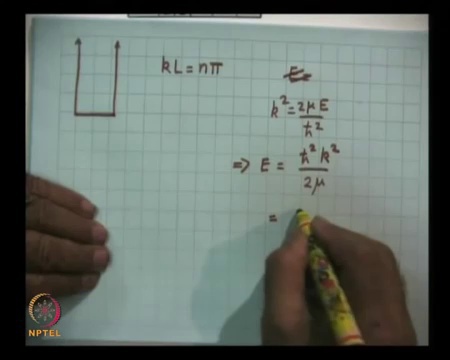 kL = nπ
E
k² = 2μE / ħ²
⇒ E = ħ²k² / 2μ
=
NPTEL